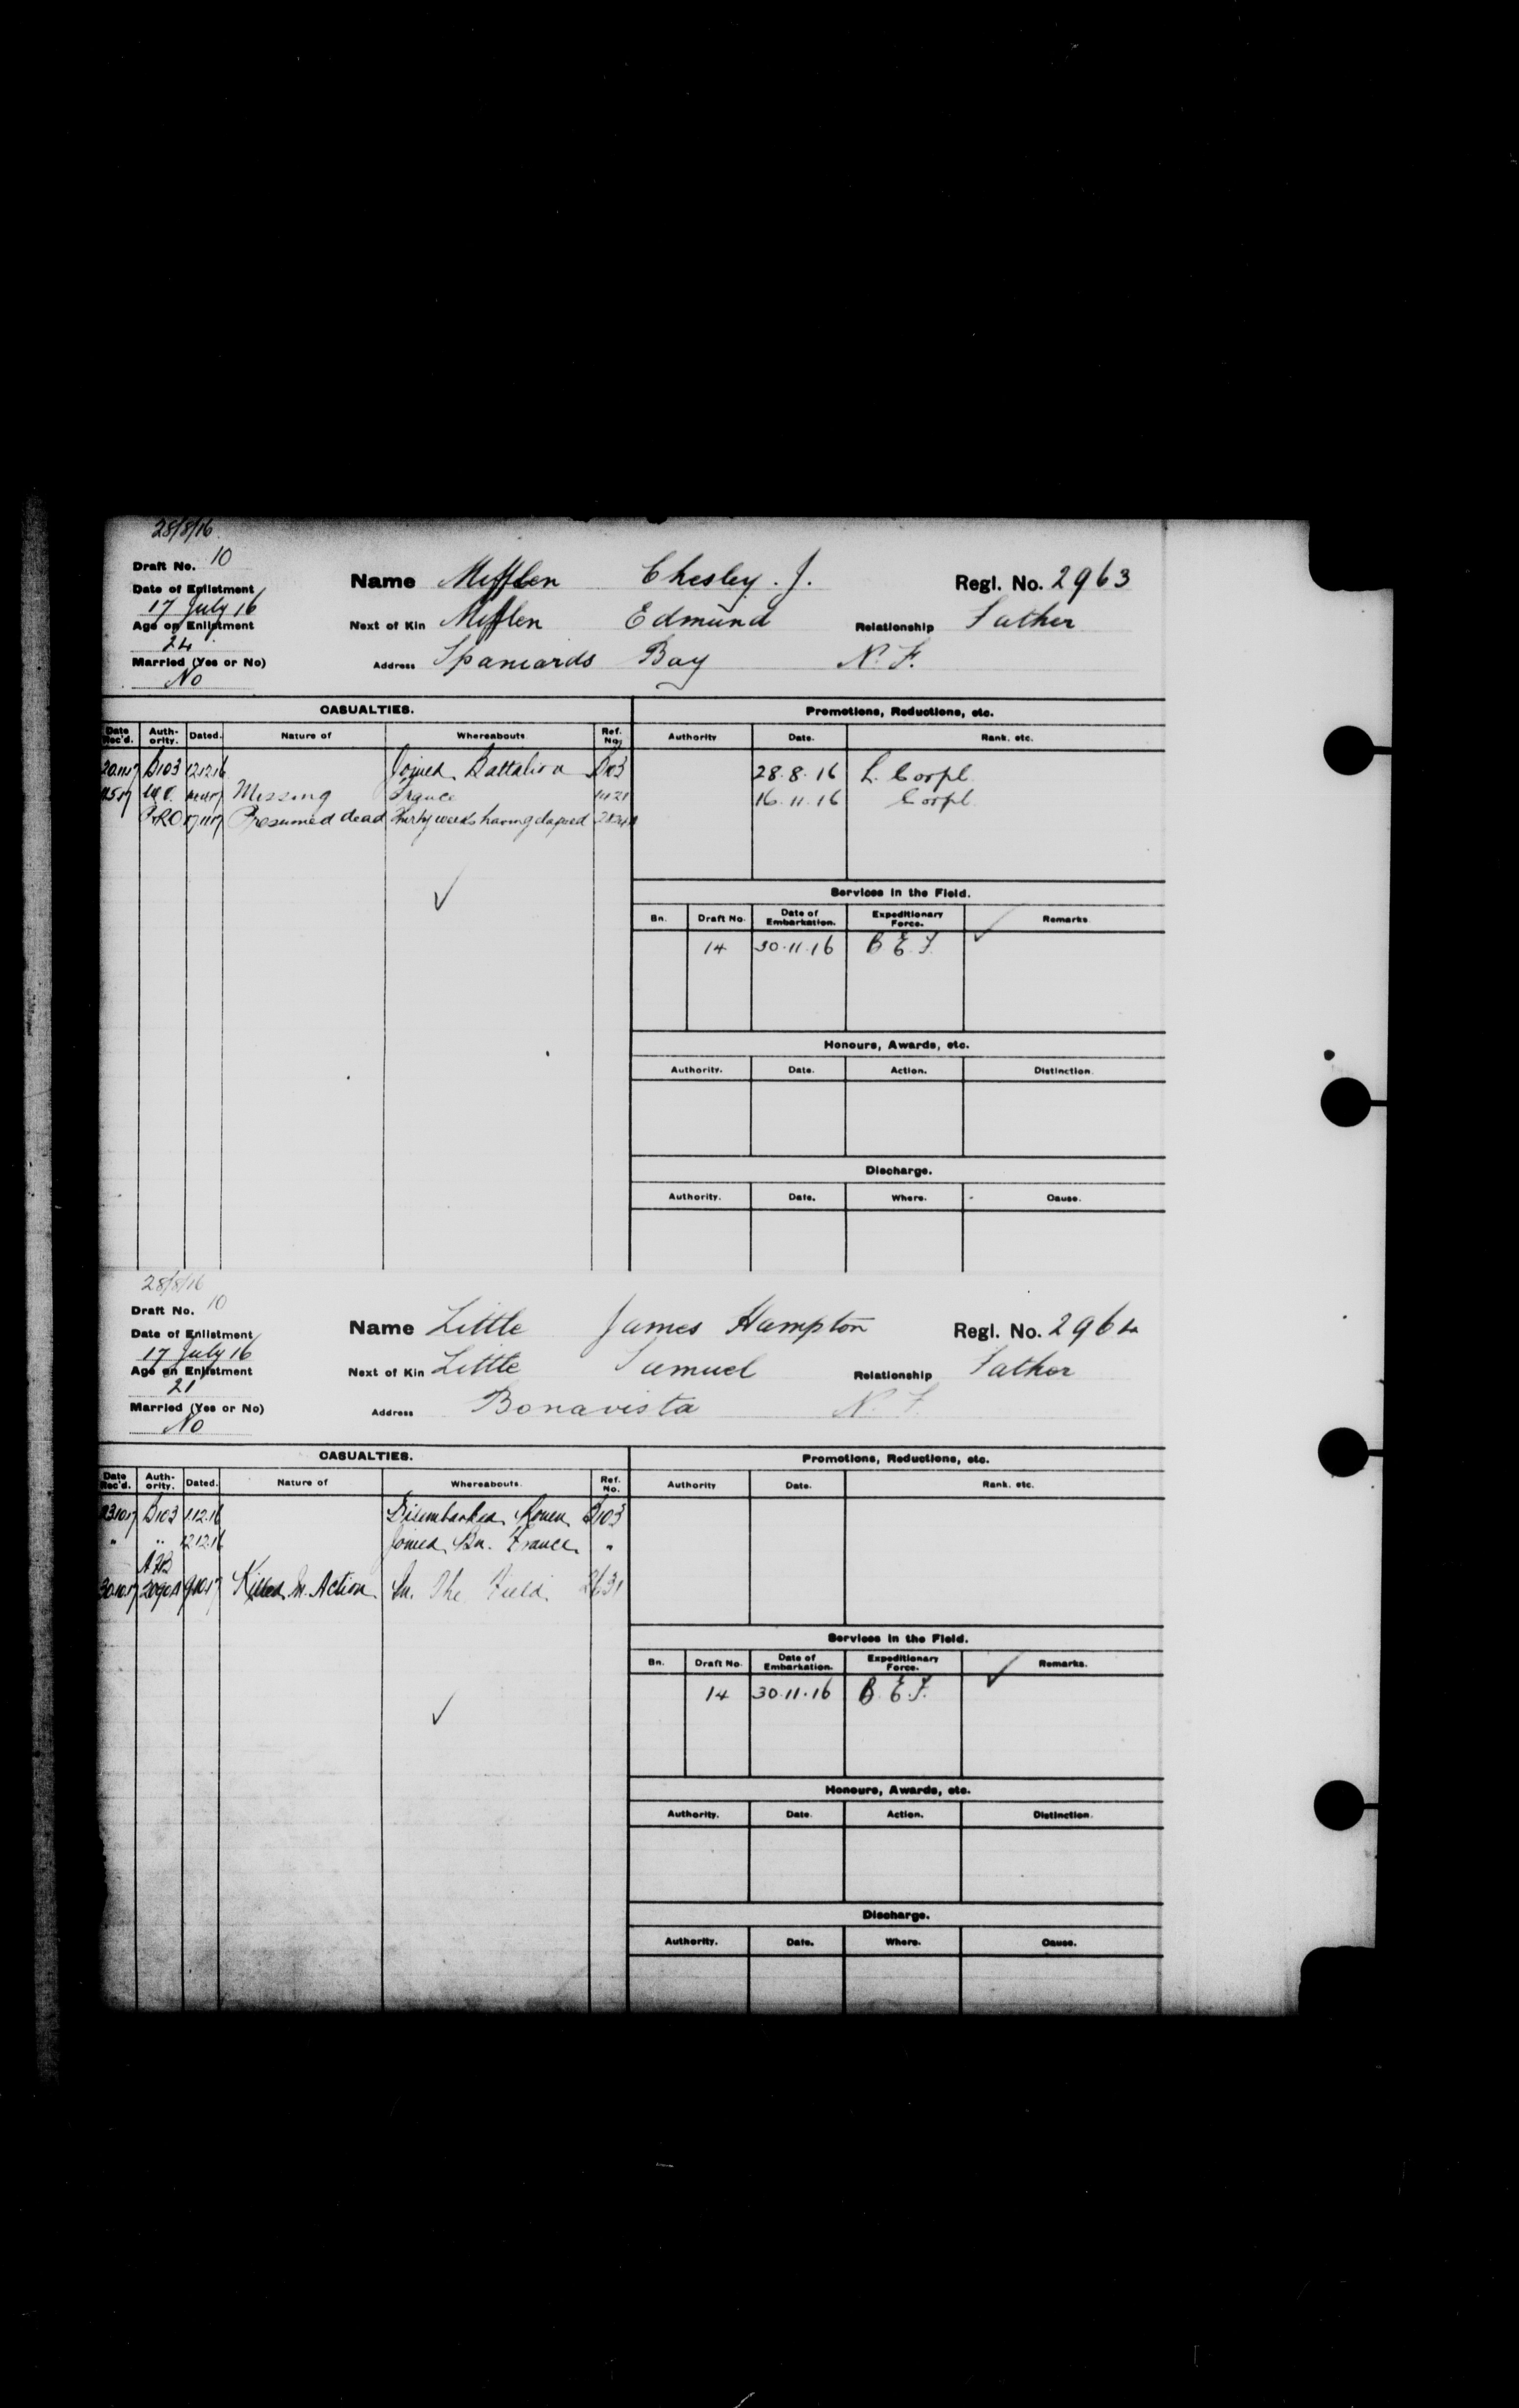 28/8/16
Draft No. 10
Date of Enlistment
17 July 16
Age on Enlistment
24
Married (Yes or No)
No
Name Mifflen Chesley. J. Regl. No. 2963
Next of Kin Mifflen Edmund Relationship Father
Address Spaniards Bay N. F.
CASUALTIES.
Date Rec'd. Auth-ority. Dated. Nature of Whereabouts Ref. No.
B103 12.12.16 Joined Battalion B103
Missing France
Presumed dead Thirty weeks having elapsed
Promotions, Reductions, etc.
Authority Date. Rank. etc.
28.8.16 L. Corpl.
16.11.16 Corpl
Services in the Field.
Bn. Draft No. Date of Embarkation. Expeditionary Force. Remarks.
14 30.11.16 B.E.F.
Honours, Awards, etc.
Authority. Date. Action. Distinction.
Discharge.
Authority. Date. Where. Cause.
28/8/16
Draft No. 10
Date of Enlistment
17 July 16
Age on Enlistment
21
Married (Yes or No)
No
Name Little James Hampton Regl. No. 2964
Next of Kin Little Samuel Relationship Father
Address Bonavista N. F.
CASUALTIES.
Date Rec'd. Auth-ority. Dated. Nature of Whereabouts. Ref. No.
B103 1.12.16 Disembarked Rouen B103
" " 12.12.16 Joined Bn. France "
30.10.17 9.10.17 Killed In Action In The Field 2631
Promotions, Reductions, etc.
Authority Date. Rank. etc.
Services in the Field.
Bn. Draft No. Date of Embarkation. Expeditionary Force. Remarks.
14 30.11.16 B.E.F.
Honours, Awards, etc.
Authority. Date. Action. Distinction.
Discharge.
Authority. Date. Where. Cause.